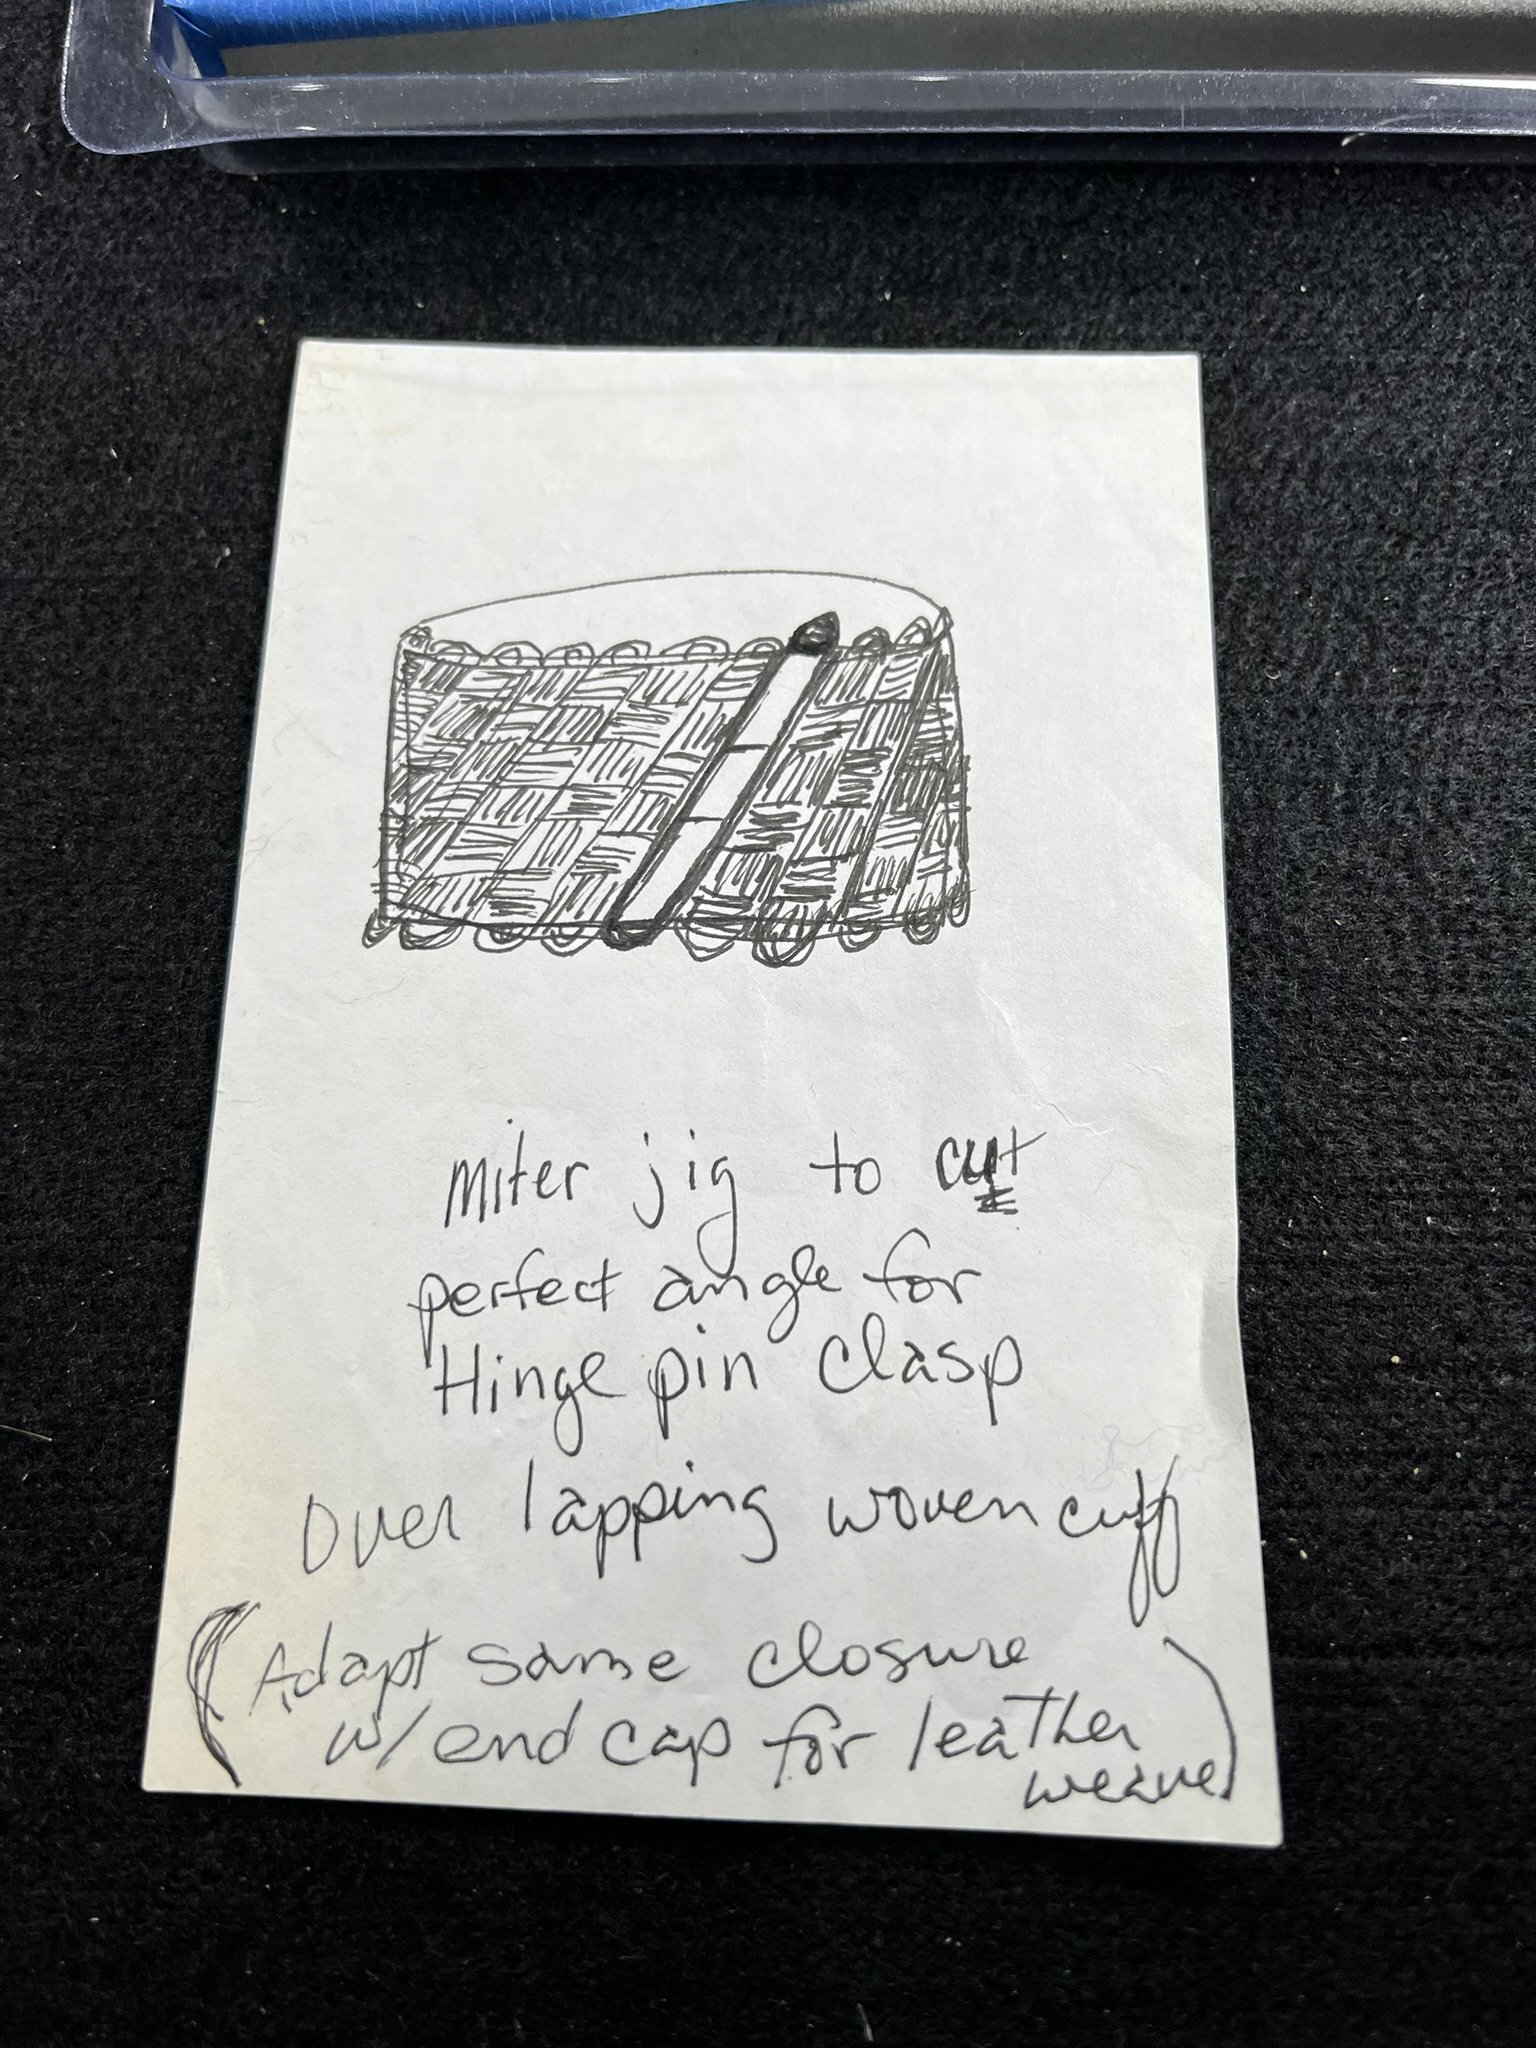 Miter jig to cut
perfect angle for
Hinge pin clasp
Over lapping woven cuff
(Adapt same closure
w/ end cap for leather
weave)